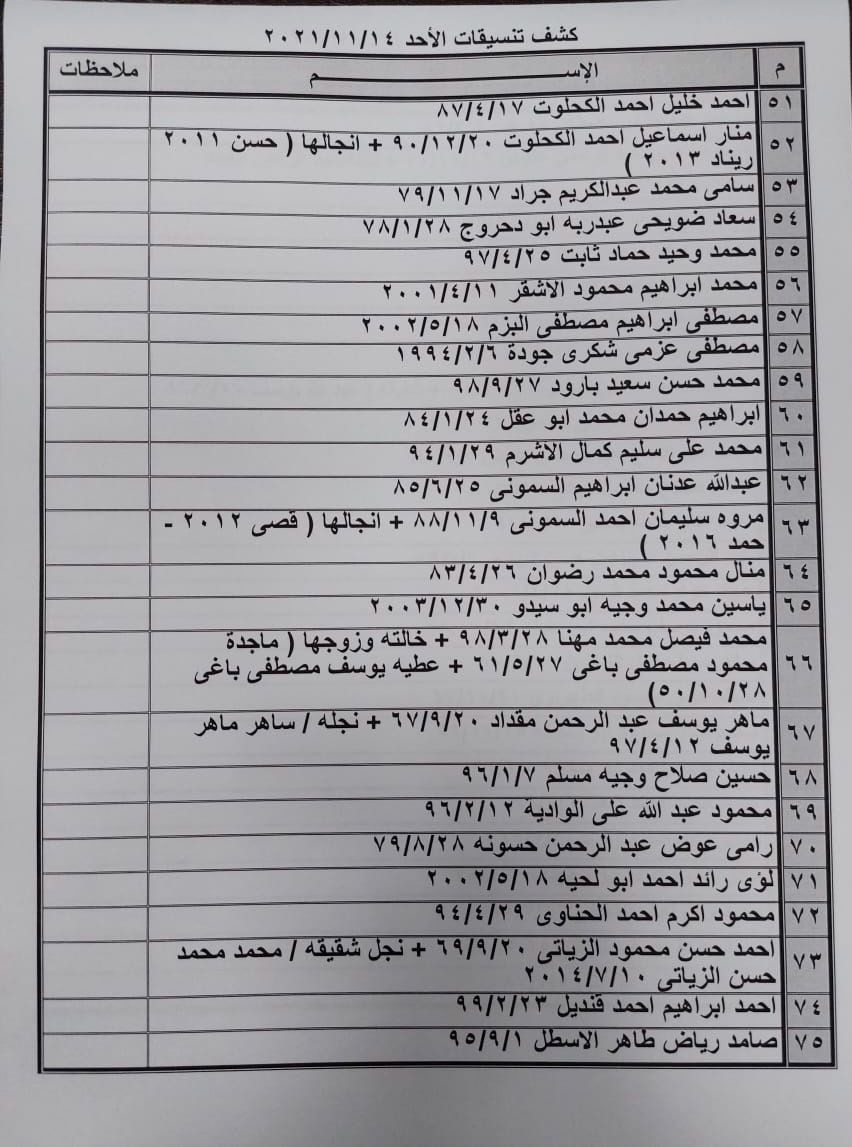 كشف تنسيقات الأحد ٢٠٢١/١١/١٤
م الإســــــــم ملاحظات
٥١ احمد خليل احمد الكحلوت ٨٧/٤/١٧
٥٢ منار اسماعيل احمد الكحلوت ٩٠/١٢/٢٠ + انجالها ( حسن ٢٠١١
ريناد ٢٠١٣ )
٥٣ سامى محمد عبدالكريم جراد ٧٩/١١/١٧
٥٤ سعاد ضويحى عبدربه ابو دحروج ٧٨/١/٢٨
٥٥ محمد وحيد حماد ثابت ٩٧/٤/٢٥
٥٦ محمد ابراهيم محمود الاشقر ٢٠٠١/٤/١١
٥٧ مصطفى ابراهيم مصطفى البزم ٢٠٠٢/٥/١٨
٥٨ مصطفى عزمى شكرى جودة ١٩٩٤/٢/٦
٥٩ محمد حسن سعيد بارود ٩٨/٩/٢٧
٦٠ ابراهيم حمدان محمد ابو عقل ٨٤/١/٢٤
٦١ محمد على سليم كمال الاشرم ٩٤/١/٢٩
٦٢ عبدالله عدنان ابراهيم السمونى ٨٥/٦/٢٥
٦٣ مروه سليمان احمد السمونى ٨٨/١١/٩ + انجالها ( قصى ٢٠١٢ -
حمد ٢٠١٦ )
٦٤ منال محمود محمد رضوان ٨٣/٤/٢٦
٦٥ ياسين محمد وجيه ابو سيدو ٢٠٠٣/١٢/٣٠
٦٦ محمد فيصل محمد مهنا ٩٨/٣/٢٨ + خالته وزوجها ( ماجدة
محمود مصطفى باغى ٦١/٥/٢٧ + عطيه يوسف مصطفى باغى
٥٠/١٠/٢٨)
٦٧ ماهر يوسف عبد الرحمن مقداد ٦٧/٩/٢٠ + نجله / ساهر ماهر
يوسف ٩٧/٤/١٢
٦٨ حسين صلاح وجيه مسلم ٩٦/١/٧
٦٩ محمود عبد الله على الوادية ٩٦/٢/١٢
٧٠ رامى عوض عبد الرحمن حسونه ٧٩/٨/٢٨
٧١ لؤى رائد احمد ابو لحيه ٢٠٠٢/٥/١٨
٧٢ محمود اكرم احمد الحناوى ٩٤/٤/٢٩
٧٣ احمد حسن محمود الزياتى ٦٩/٩/٢٠ + نجل شقيقه / محمد محمد
حسن الزياتى ٢٠١٤/٧/١٠
٧٤ احمد ابراهيم احمد قنديل ٩٩/٢/٢٣
٧٥ صامد رياض طاهر الاسطل ٩٥/٩/١